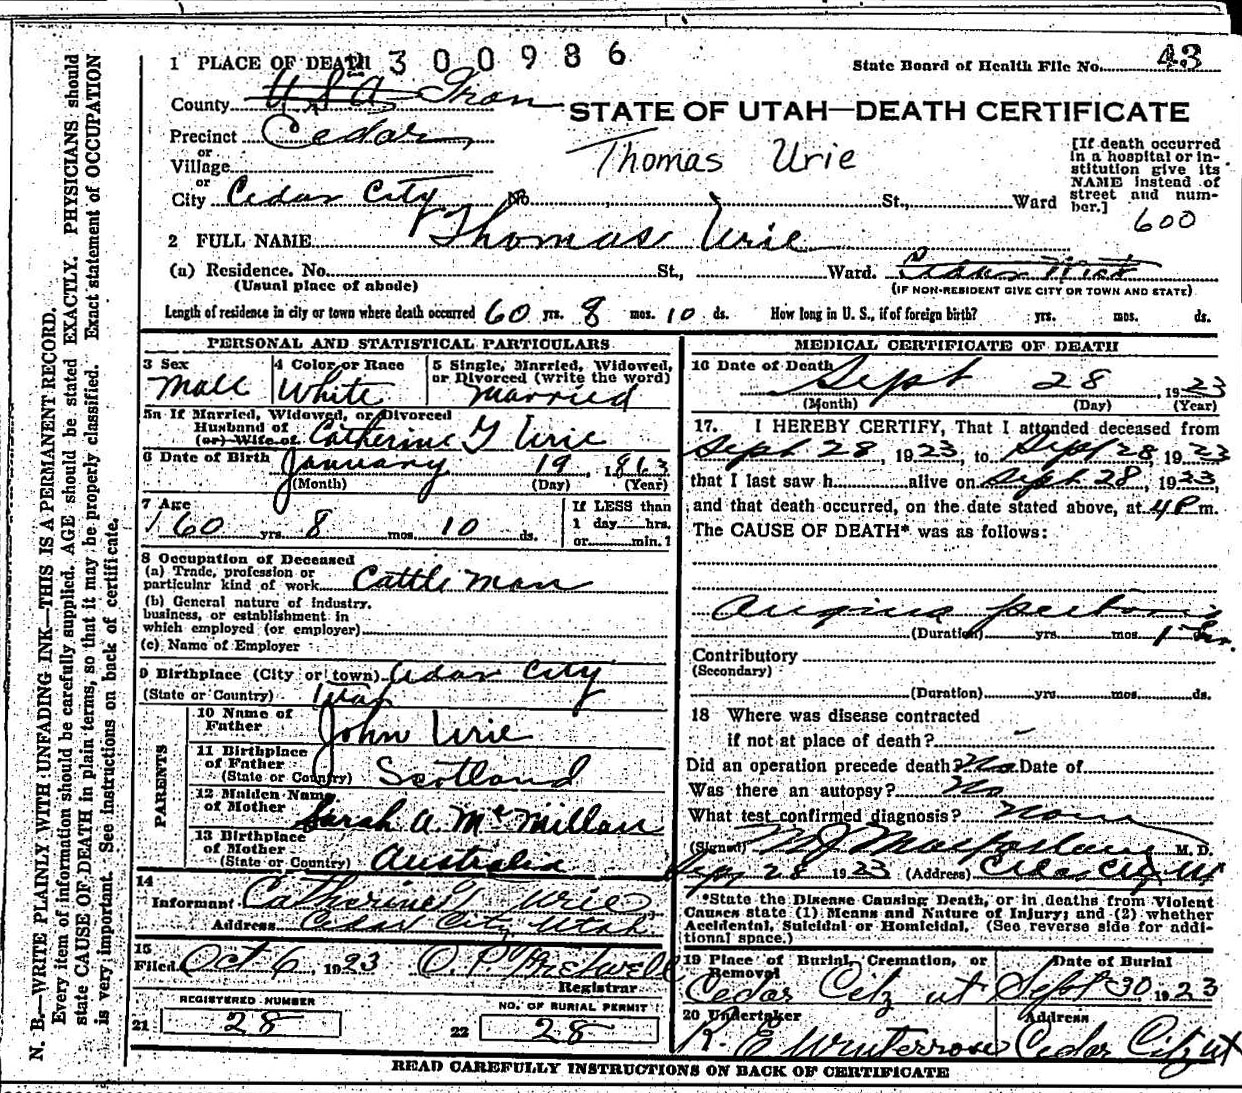 1 PLACE OF DEATH 2 3 0 0 9 8 6
State Board of Health File No. 43
County U.S.A. Iron
STATE OF UTAH—DEATH CERTIFICATE
Precinct Cedar
Thomas Urie
or
Village
or
City Cedar City No. St., Ward
[If death occurred
in a hospital or in-
stitution give its
NAME instead of
street and num-
ber.]
600
2 FULL NAME Thomas Urie
(a) Residence. No. St., Ward.
(Usual place of abode)
(IF NON-RESIDENT GIVE CITY OR TOWN AND STATE)
Length of residence in city or town where death occurred 60 yrs. 8 mos. 10 ds. How long in U. S., if of foreign birth? yrs. mos. ds.
PERSONAL AND STATISTICAL PARTICULARS
3 Sex
Male
4 Color or Race
White
5 Single, Married, Widowed,
or Divorced (write the word)
Married
5a If Married, Widowed, or Divorced
Husband of
(or) Wife of Catherine G Urie
6 Date of Birth January 19, 1863
(Month) (Day) (Year)
7 Age
60 yrs. 8 mos. 10 ds.
If LESS than
1 day hrs.
or min.
8 Occupation of Deceased
(a) Trade, profession or
particular kind of work Cattle man
(b) General nature of industry,
business, or establishment in
which employed (or employer)
(c) Name of Employer
9 Birthplace (City or town) Cedar City
(State or Country) Utah
PARENTS
10 Name of
Father John Urie
11 Birthplace
of Father
(State or Country) Scotland
12 Maiden Name
of Mother Sarah A. McMillan
13 Birthplace
of Mother
(State or Country) Australia
14
Informant Catherine G Urie
Address Cedar City, Utah
15
Filed Oct 6, 1923 O. P. Fretwell
Registrar
REGISTERED NUMBER
21 28
NO. OF BURIAL PERMIT
22 28
MEDICAL CERTIFICATE OF DEATH
16 Date of Death
Sept 28 1923
(Month) (Day) (Year)
17. I HEREBY CERTIFY, That I attended deceased from
Sept 28, 1923, to Sept 28, 1923
that I last saw h alive on Sept 28, 1923,
and that death occurred, on the date stated above, at 4 P m.
The CAUSE OF DEATH* was as follows:
Angina pectoris
(Duration) yrs. mos. 1 hr.
Contributory
(Secondary)
(Duration) yrs. mos. ds.
18 Where was disease contracted
if not at place of death? -
Did an operation precede death? No Date of
Was there an autopsy? No
What test confirmed diagnosis? None
(Signed) M J Macfarlane M. D.
Sept 28 1923 (Address) Cedar City Ut
*State the Disease Causing Death, or in deaths from Violent
Causes state (1) Means and Nature of Injury; and (2) whether
Accidental, Suicidal or Homicidal. (See reverse side for addi-
tional space.)
19 Place of Burial, Cremation, or
Removal
Cedar City Ut
Date of Burial
Sept 30 1923
20 Undertaker
R. E. Winterrose
Address
Cedar City Ut
READ CAREFULLY INSTRUCTIONS ON BACK OF CERTIFICATE
N. B.—WRITE PLAINLY WITH UNFADING INK—THIS IS A PERMANENT RECORD.
Every item of information should be carefully supplied. AGE should be stated EXACTLY. PHYSICIANS should
state CAUSE OF DEATH in plain terms, so that it may be properly classified. Exact statement of OCCUPATION
is very important. See instructions on back of certificate.